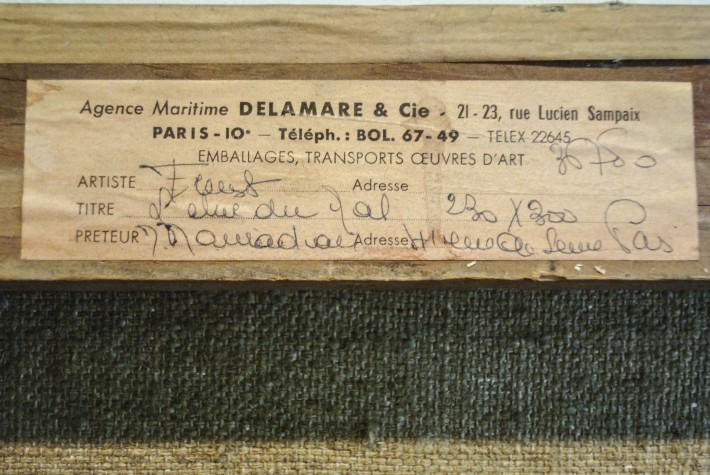 Agence Maritime DELAMARE & Cie - 21-23, rue Lucien Sampaix
PARIS-10e — Téléph. : BOL. 67-49 — TELEX 22645
EMBALLAGES, TRANSPORTS ŒUVRES D'ART
ARTISTE Ernst Adresse
TITRE du 230 X 300
PRETEUR Adresse